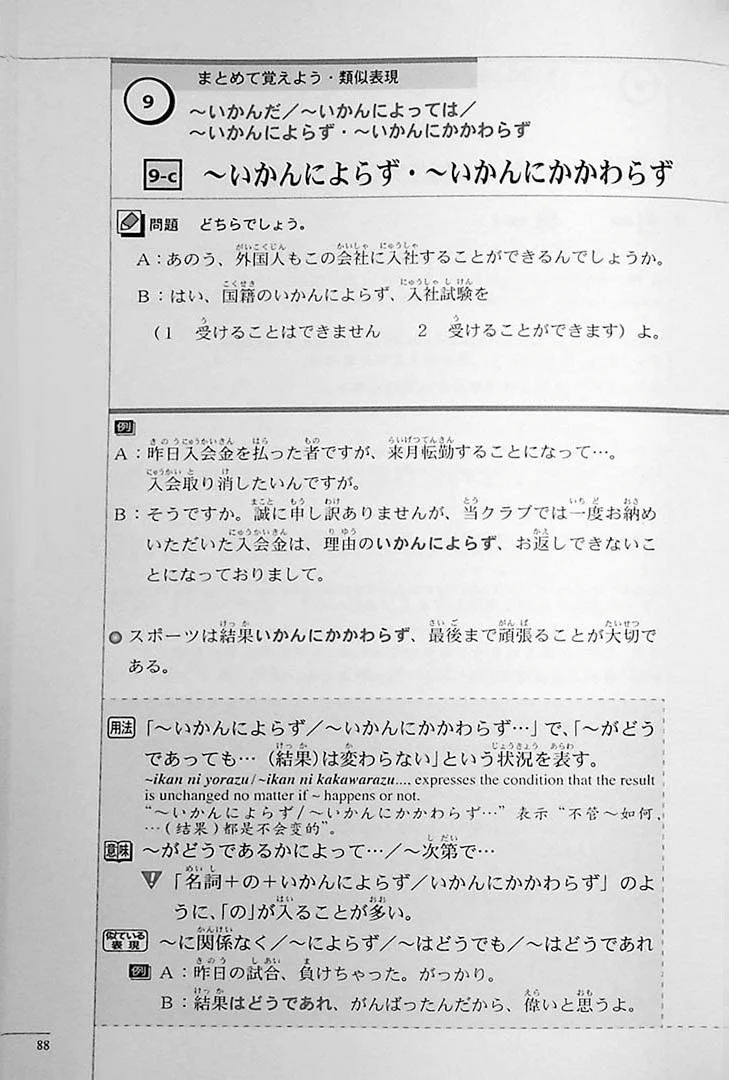 まとめて覚えよう・類似表現
9
〜いかんだ／〜いかんによっては／
〜いかんによらず・〜いかんにかかわらず
9-c 〜いかんによらず・〜いかんにかかわらず
問題 どちらでしょう。
がいこくじん かいしゃ にゅうしゃ
A：あのう、外国人もこの会社に入社することができるんでしょうか。
こくせき にゅうしゃ し けん
B：はい、国籍のいかんによらず、入社試験を
う う
（1 受けることはできません 2 受けることができます）よ。
例
きのうにゅうかいきん はら もの らいげつてんきん
A：昨日入会金を払った者ですが、来月転勤することになって…。
にゅうかい と け
入会取り消したいんですが。
まこと もう わけ とう いち ど おさ
B：そうですか。誠に申し訳ありませんが、当クラブでは一度お納め
にゅうかいきん り ゆう かえ
いただいた入会金は、理由のいかんによらず、お返しできないこ
とになっておりまして。
けっ か さい ご がん ば たいせつ
スポーツは結果いかんにかかわらず、最後まで頑張ることが大切で
ある。
用法 「〜いかんによらず／〜いかんにかかわらず…」で、「〜がどう
けっ か か じょうきょう あらわ
であっても…（結果）は変わらない」という状況を表す。
~ikan ni yorazu/~ikan ni kakawarazu.... expresses the condition that the result
is unchanged no matter if ~ happens or not.
“〜いかんによらず/〜いかんにかかわらず…”表示“不管〜如何,
…(结果)都是不会变的”。
し だい
意味 〜がどうであるかによって…／〜次第で…
めい し
「名詞＋の＋いかんによらず／いかんにかかわらず」のよ
はい おお
うに、「の」が入ることが多い。
かんけい
似ている表現 〜に関係なく／〜によらず／〜はどうでも／〜はどうであれ
きのう し あい ま
例 A：昨日の試合、負けちゃった。がっかり。
けっ か えら おも
B：結果はどうであれ、がんばったんだから、偉いと思うよ。
88